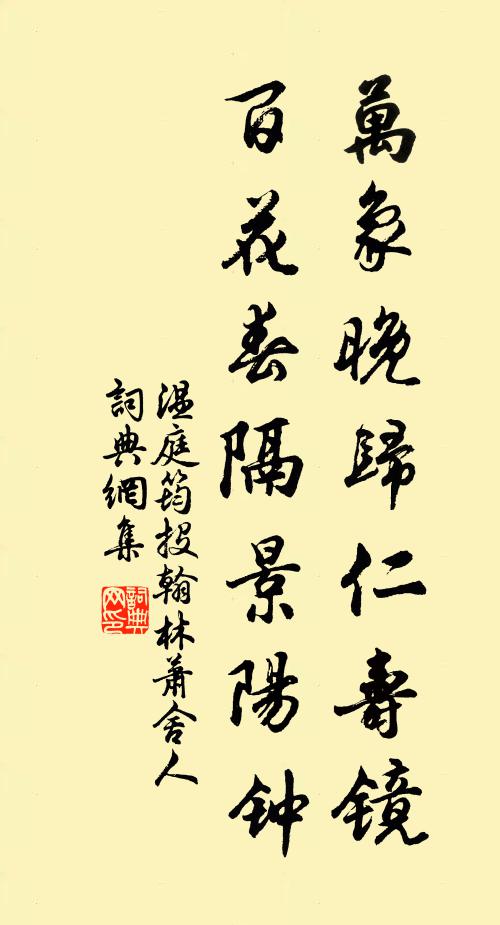 萬象晚歸仁壽镜
百花春隔景陽钟
温庭筠投翰林蕭舍人
詞典網集
詞典
网印